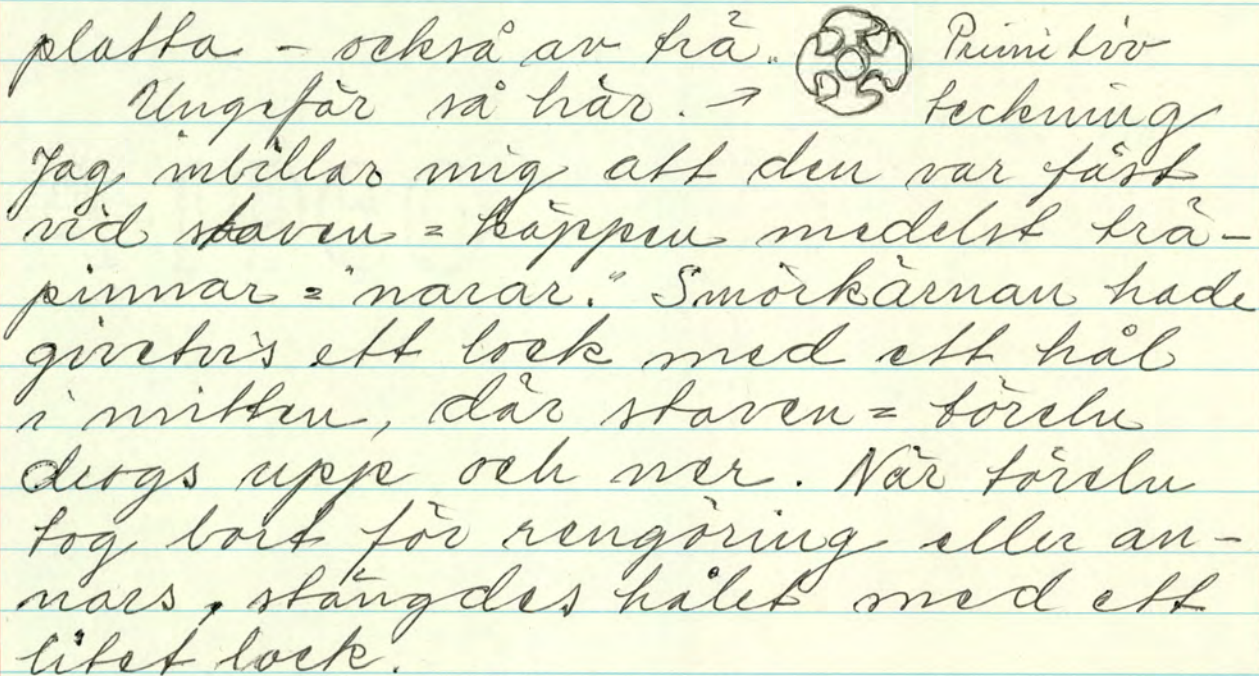 platta - också av trä. Primitiv
Ungefär så här. → teckning
Jag inbillar mig att den var fäst
vid staven = käppen medelst trä-
pinnar = "narar." Smörkärnan hade
givetvis ett lock med ett hål
i mitten, där staven = töreln
drogs upp och ner. När töreln
tog bort för rengöring eller an-
nars, stängdes hålet med ett
litet lock.